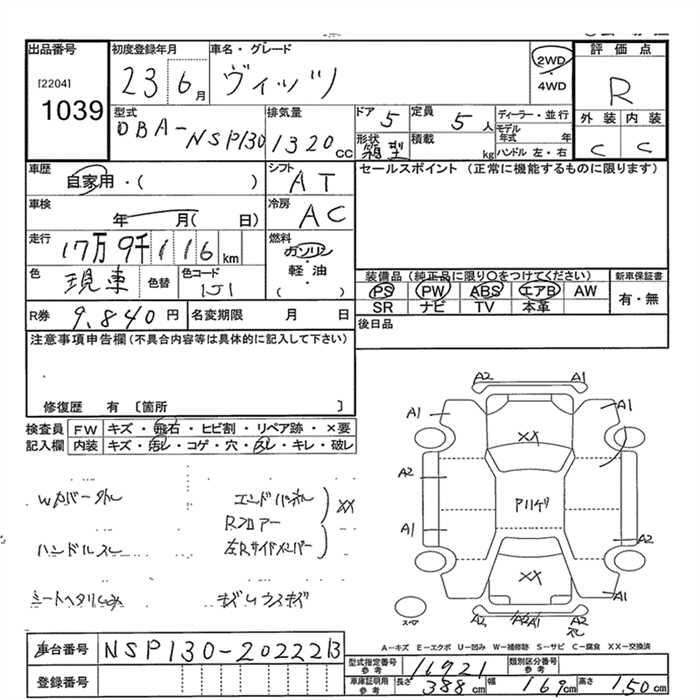 出品番号 [2204] 1039
初度登録年月 23 6月
車名・グレード ヴィッツ
2WD・4WD
評価点 R
外装 C 内装 C
型式 DBA-NSP130
排気量 1320 cc
ドア 5
定員 5人
形状 箱型
積載 kg
ディーラー・並行
モデル年式 年
ハンドル 左・右
車歴 自家用・( )
シフト AT
車検 年 月( 日)
冷房 AC
走行 17万9千116 km
燃料 ガソリン・軽油・( )
色 現車 色替 色コード 1J1
R券 9.840円 名変期限 月 日
セールスポイント (正常に機能するものに限ります)
装備品 (純正品に限り〇をつけてください)
PS PW ABS エアB AW
SR ナビ TV 本革
新車保証書 有・無
後日品
注意事項申告欄(不具合内容等は具体的に記入して下さい)
修復歴 有 〔箇所 〕
検査員記入欄
FW キズ・飛石・ヒビ割・リペア跡・×要
内装 キズ・汚レ・コゲ・穴・灰レ・キレ・破レ
エンドパネル
Rフロアー XX
ハンドルスレ 左Rサイドメンバー
A2 A1
A1 A1
XX
A2
A1 A2
XX
A1
A2 A1
A-キズ E-エクボ U-凹み W-補修跡 S-サビ C-腐食 XX-交換済
車台番号 NSP130-2022213
登録番号
型式指定番号 参考 16921 類別区分番号 参考
車庫証明用 参考 長さ 388cm 幅 169cm 高さ 150cm